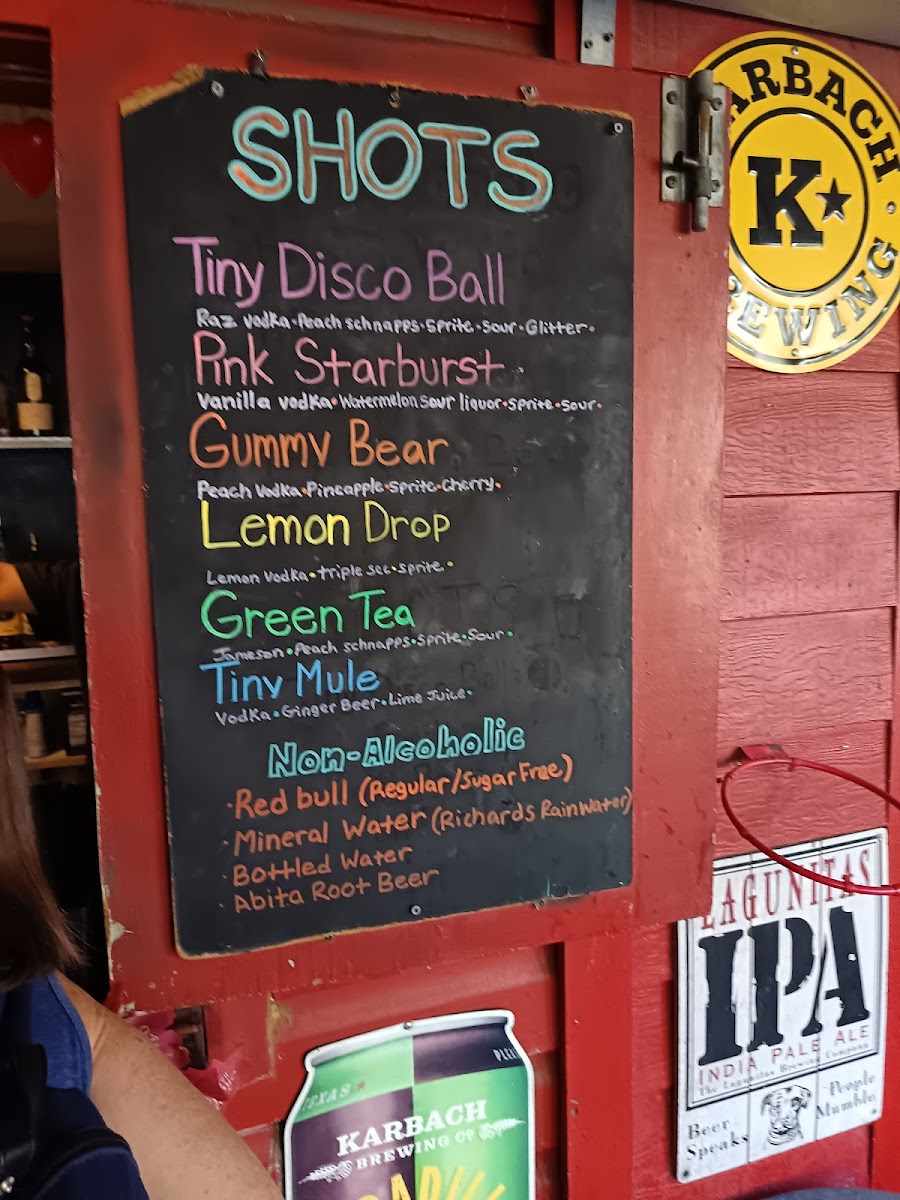 SHOTS
Tiny Disco Ball
Raz vodka • Peach schnapps • Sprite • Sour • Glitter •
Pink Starburst
Vanilla vodka • Watermelon Sour liquor • Sprite • Sour •
Gummy Bear
Peach Vodka • Pineapple • Sprite • Cherry •
Lemon Drop
Lemon Vodka • triple sec • sprite •
Green Tea
Jameson • Peach schnapps • Sprite • Sour •
Tiny Mule
Vodka • Ginger Beer • Lime Juice •
Non-Alcoholic
• Red bull (Regular/Sugar Free)
• Mineral Water (Richards Rain Water)
• Bottled Water
• Abita Root Beer
KARBACH
K
BREWING
LAGUNITAS
IPA
INDIA PALE ALE
The Lagunitas Brewing Company
Beer
Speaks
People
Mumble
TEXAS
KARBACH
BREWING CO